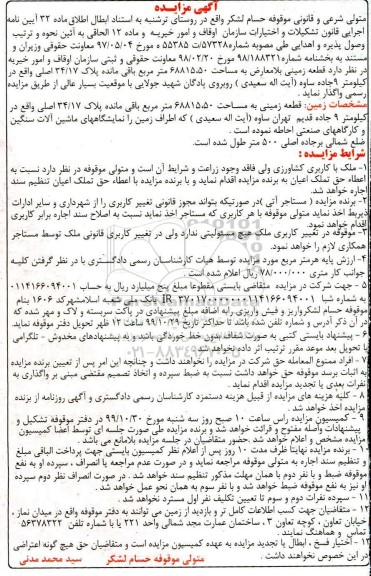 آگهی مزایده
متولی شرعی و قانونی موقوفه حسام لشکر واقع در روستای ترشنبه به استناد ابطال اطلاق ماده ۳۲ آیین نامه
اجرایی قانون تشکیلات و اختیارات سازمان اوقاف و امور خیریه و ماده ۱۲ الحاقی به آئین نحوه و ترتیب
وصول پذیره و اهدایی طی مصوبه شماره ۵۷۳۲۸/ت ۵۵۳۸۵ ه مورخ ۹۷/۰۵/۰۴ معاونت حقوقی وزیران و
مستند به بخشنامه شماره ۹۸/۱۸۸۳۲۱ مورخ ۹۸/۰۲/۲۰ معاونت حقوقی و ثبتی سازمان اوقاف و امور خیریه
در نظر دارد قطعه زمینی بلامعارض به مساحت ۶۸۸۱۵،۵۰ متر مربع باقی مانده پلاک ۳۴/۱۷ اصلی واقع در
کیلومتر ۹ جاده ساوه (آیت اله سعیدی ) روبروی پادگان شهید جولایی با موقعیت بسیار عالی از طریق مزایده
رسمی واگذار نماید.
مشخصات زمین: قطعه زمینی به مساحت ۶۸۸۱۵،۵۰ متر مربع باقی مانده پلاک ۳۴/۱۷ اصلی واقع در
کیلومتر ۹ جاده قدیم تهران ساوه (آیت اله سعیدی ) که اطراف زمین را نمایشگاههای ماشین آلات سنگین
و کارگاههای صنعتی احاطه نموده است .
ضلع شمالی برجاده اصلی ۵۰۰ متر طول شده است.
شرایط مزایده :
۱- ملک با کاربری کشاورزی ولی فاقد وجود زراعت و شرایط آن است و متولی موقوفه در نظر دارد نسبت به
اعطاء حق تملک اعیان به برنده مزایده اقدام نماید و با برنده مزایده با اعطاء حق تملک اعیان تنظیم سند
اجاره خواهد شد.
۲- برنده مزایده ( مستاجر آتی )در صورتیکه بتواند مجوز قانونی تغییر کاربری را از شهرداری و سایر ادارات
ذیربط اخذ نماید متولی موقوفه با هر کاربری که مستاجر اخذ نماید نسبت به اصلاح سند اجاره برابر کاربری
اقدام خواهد نمود.
۳- موقوفه در تغییر کاربری ملک هیچ مسئولیتی ندارد ولی در تغییر کاربری قانونی ملک توسط مستاجر
همکاری لازم را خواهد نمود.
۴- ارزش پایه هرمتر مربع مورد مزایده توسط هیات کارشناسان رسمی دادگستری با در نظر گرفتن کلیه
جوانب کار متری ۷۸/۰۰۰/۰۰۰ ریال اعلام شده است .
۵- جهت شرکت در مزایده متقاضی بایستی مقطوعا مبلغ پنج میلیارد ریال به حساب ۰۱۱۴۱۶۶۰۹۴۰۰۱
به شماره شبا IR ۳۷۰۱۷۰۰۰۰۰۰۰۱۱۴۱۶۶۰۹۴۰۰۱ بانک ملی شعبه اسلامشهرکد ۱۶۰۶ بنام
موقوفه حسام لشکرواریز و فیش واریزی رابه اضافه مبلغ پیشنهادی در پاکت سربسته و لاک و مهر شده که
در آن ذکر آدرس و شماره تلفن شده باشد تا حداکثر تاریخ ۹۹/۱۰/۲۹ ساعت ۱۲ ظهر تحویل دفتر موقوفه نماید.
۶- پیشنهاد بایستی کتبی به صورت شفاف بدون خط خوردگی باشد و به پیشنهادهای مخدوش - تلگرامی
یا تحویل بعد موعد مقرر ترتیب اثر داده نخواهد شد.
۷- افراد ممنوع المعامله حق شرکت در مزایده را نخواهند داشت و چنانچه این امر پس از تعیین برنده مزایده
به اثبات برسد موقوفه حق خواهد داشت نسبت به ضبط سپرده و اتخاذ تصمیم مقتضی مبنی بر واگذاری به
نفرات بعدی یا تجدید مزایده اقدام نماید .
۸- کلیه هزینه های مزایده از قبیل هزینه دستمزد کارشناسان رسمی دادگستری و آگهی روزنامه از برنده
مزایده اخذ خواهد شد.
۹- کمیسیون مزایده راس ساعت ۱۰ صبح روز سه شنبه مورخ ۹۹/۱۰/۳۰ در دفتر موقوفه تشکیل و
پیشنهادات واصله مفتوح و قرائت خواهد شد و برنده مزایده طی صورت جلسه ای توسط اعضا کمیسیون
مزایده مشخص و اعلام خواهد شد .حضور متقاضیان در جلسه مزایده بلامانع می باشد.
۱۰- برنده مزایده نهایتا ظرف مدت ۱۰ روز پس از اعلام نظر کمیسیون بایستی جهت پرداخت الباقی مبلغ
و تنظیم سند اجاره به متولی موقوفه مراجعه نماید و در صورت عدم مراجعه یا انصراف ، سپرده او به نفع
موقوفه ضبط و با نفر دوم با همان مهلت مذکور تنظیم سند خواهد شد . در صورت انصراف نظر دوم سپرده
او نیز به نفع موقوفه ضبط و با نفر سوم به همان نحو عمل خواهد شد.
۱۱- سپرده نفرات دوم و سوم تا تعیین تکلیف نفر اول مسترد نخواهد شد .
۱۲- متقاضیان جهت کسب اطلاعات کامل تر و بازدید از زمین می توانند به دفتر موقوفه واقع در میدان نماز ،
خیابان تعاون ، کوچه تعاون ۳ ، ساختمان عمارت مجد شمالی واحد ۲۲۱ یا با شماره تلفن ۵۶۳۷۸۳۲۲
تماس و هماهنگ نمایند .
۱۳- اختیار فسخ ، ابطال یا تجدید مزایده به عهده کمیسیون مزایده است و متقاضیان حق هیچ گونه اعتراضی
در این خصوص نخواهند داشت .
متولی موقوفه حسام لشکر سید محمد مدنی